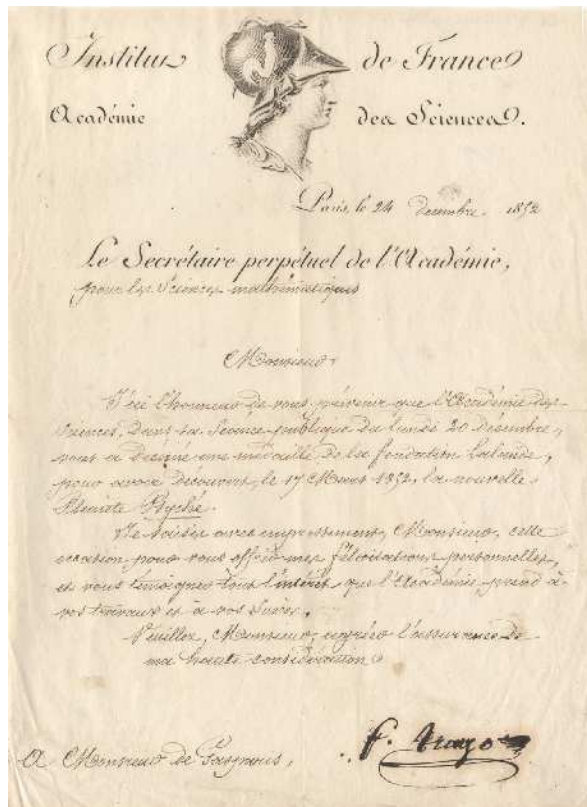 Institut de France
Académie des Sciences.
Paris, le 24 décembre 1852
Le Secrétaire perpétuel de l'Académie,
pour les Sciences mathématiques
Monsieur
J'ai l'honneur de vous prévenir que l'Académie des
Sciences, dans sa Séance publique du lundi 20 décembre,
vous a décerné une médaille de la fondation Lalande,
pour avoir découvert, le 17 Mars 1852, la nouvelle
Planète Psyché.
Je saisis avec empressement, Monsieur, cette
occasion pour vous offrir mes félicitations personnelles,
et vous témoigner tout l'intérêt que l'Académie prend à
vos travaux et à vos succès.
Veuillez, Monsieur, agréer l'assurance de
ma haute considération
f. Arago
A Monsieur de Gasparis,